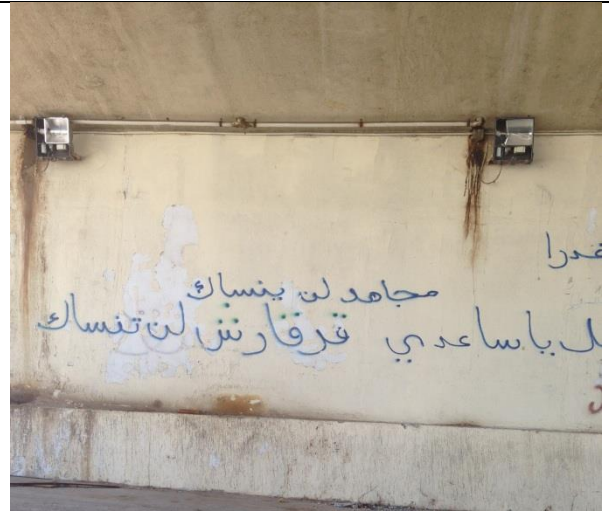 غدرا
مجاهد لن ينساك
يا ساعدي قرقارش لن تنساك